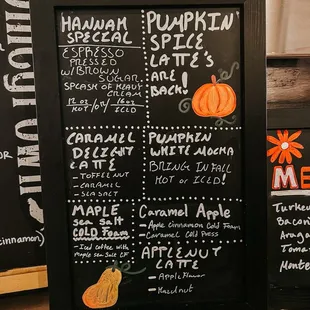 Hannah
Special
Espresso
pressed
w/Brown
Sugar
Splash of Heavy
Cream
12 oz /or/ 16oz
Hot Iced
Pumpkin
Spice
Latte's
are
Back!
Caramel
Delight
Latte
- Toffee nut
- Caramel
- Sea Salt
Pumpkin
White Mocha
Bring in Fall
Hot or Iced!
Maple
Sea Salt
Cold Foam
- Iced Coffee with
Maple Sea Salt CF
Caramel Apple
- Apple Cinnamon Cold Foam
- Caramel Cold Press
Applenut
Latte
- Apple Flavor
- Hazelnut
or
cinnamon)
Me
Turke
Bacon
Arag
Toma
Monte